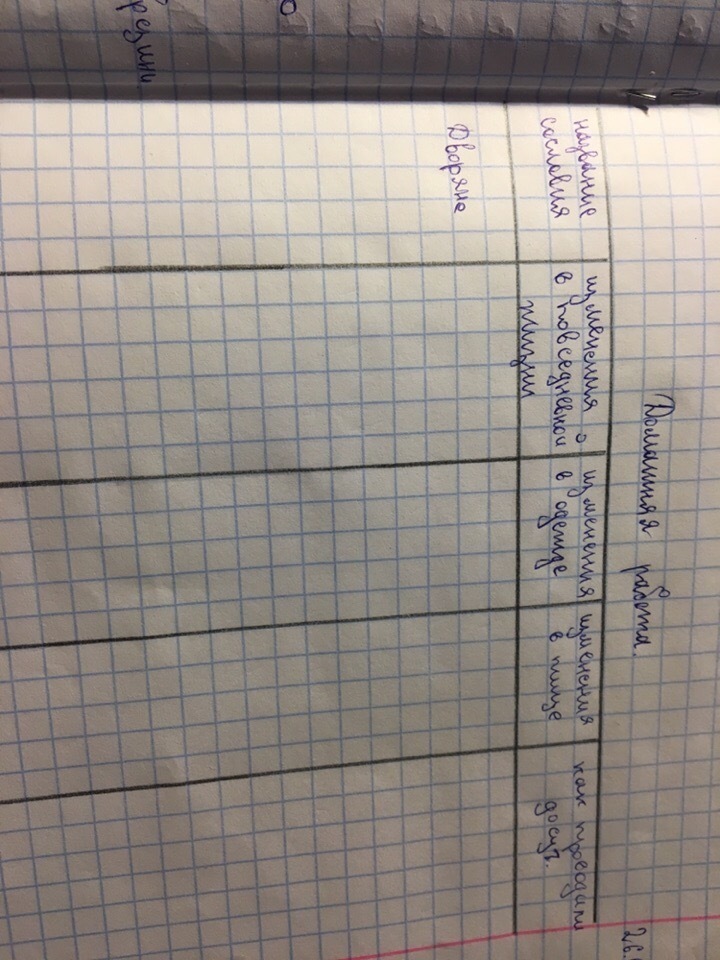 Домашняя работа.
название
сословия
изменения
в повседневной
жизни
изменения
в одежде
изменения
в пище
как проводили
досуг.
Дворяне
26.